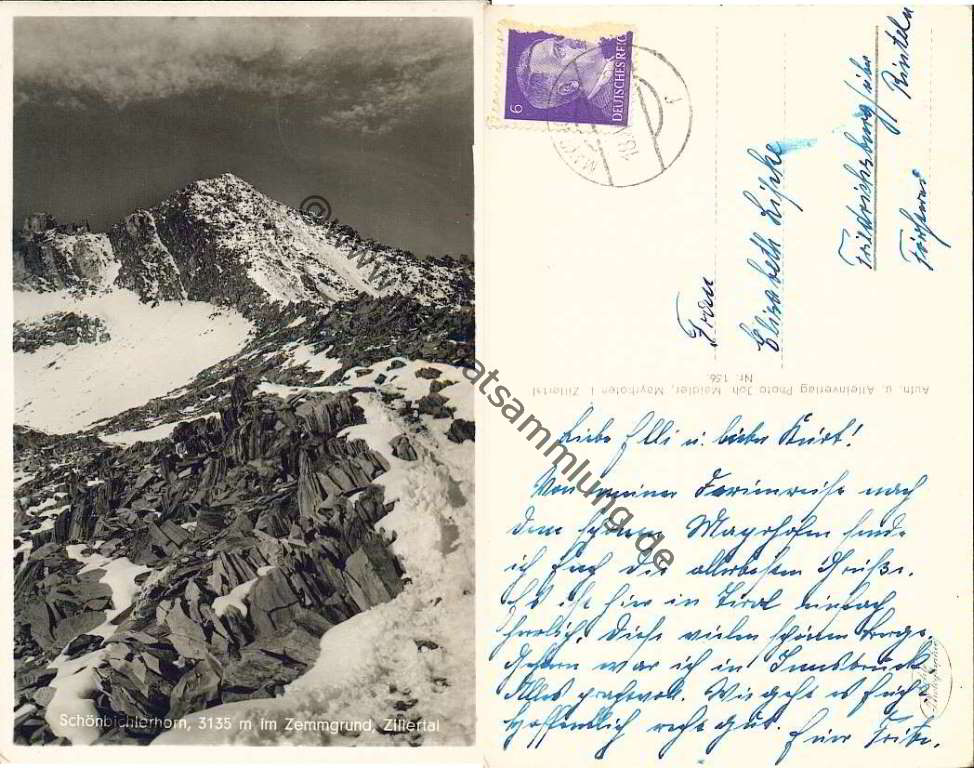 Schönbichlerhorn, 3135 m im Zemmgrund, Zillertal
6
DEUTSCHES REICH
18
Frau
Elisabeth Lipke
Friedrichsburg
Rinteln
Auth. u. Alleinverlag Photo Joh Maidler, Mayrhofen i Zillertal
Nr. 156
Liebe Elli u. lieber Kurt!
Von meiner Ferienreise nach
dem schönen Mayrhofen sende
ich Euch die allerbesten Grüße.
Es ist hier in Tirol einfach
herrlich! Diese vielen schönen Berge.
Gestern war ich in Innsbruck.
Alles prachtvoll. Wie geht es Euch?
Hoffentlich recht gut.
Eure
© www
atsammlung.de